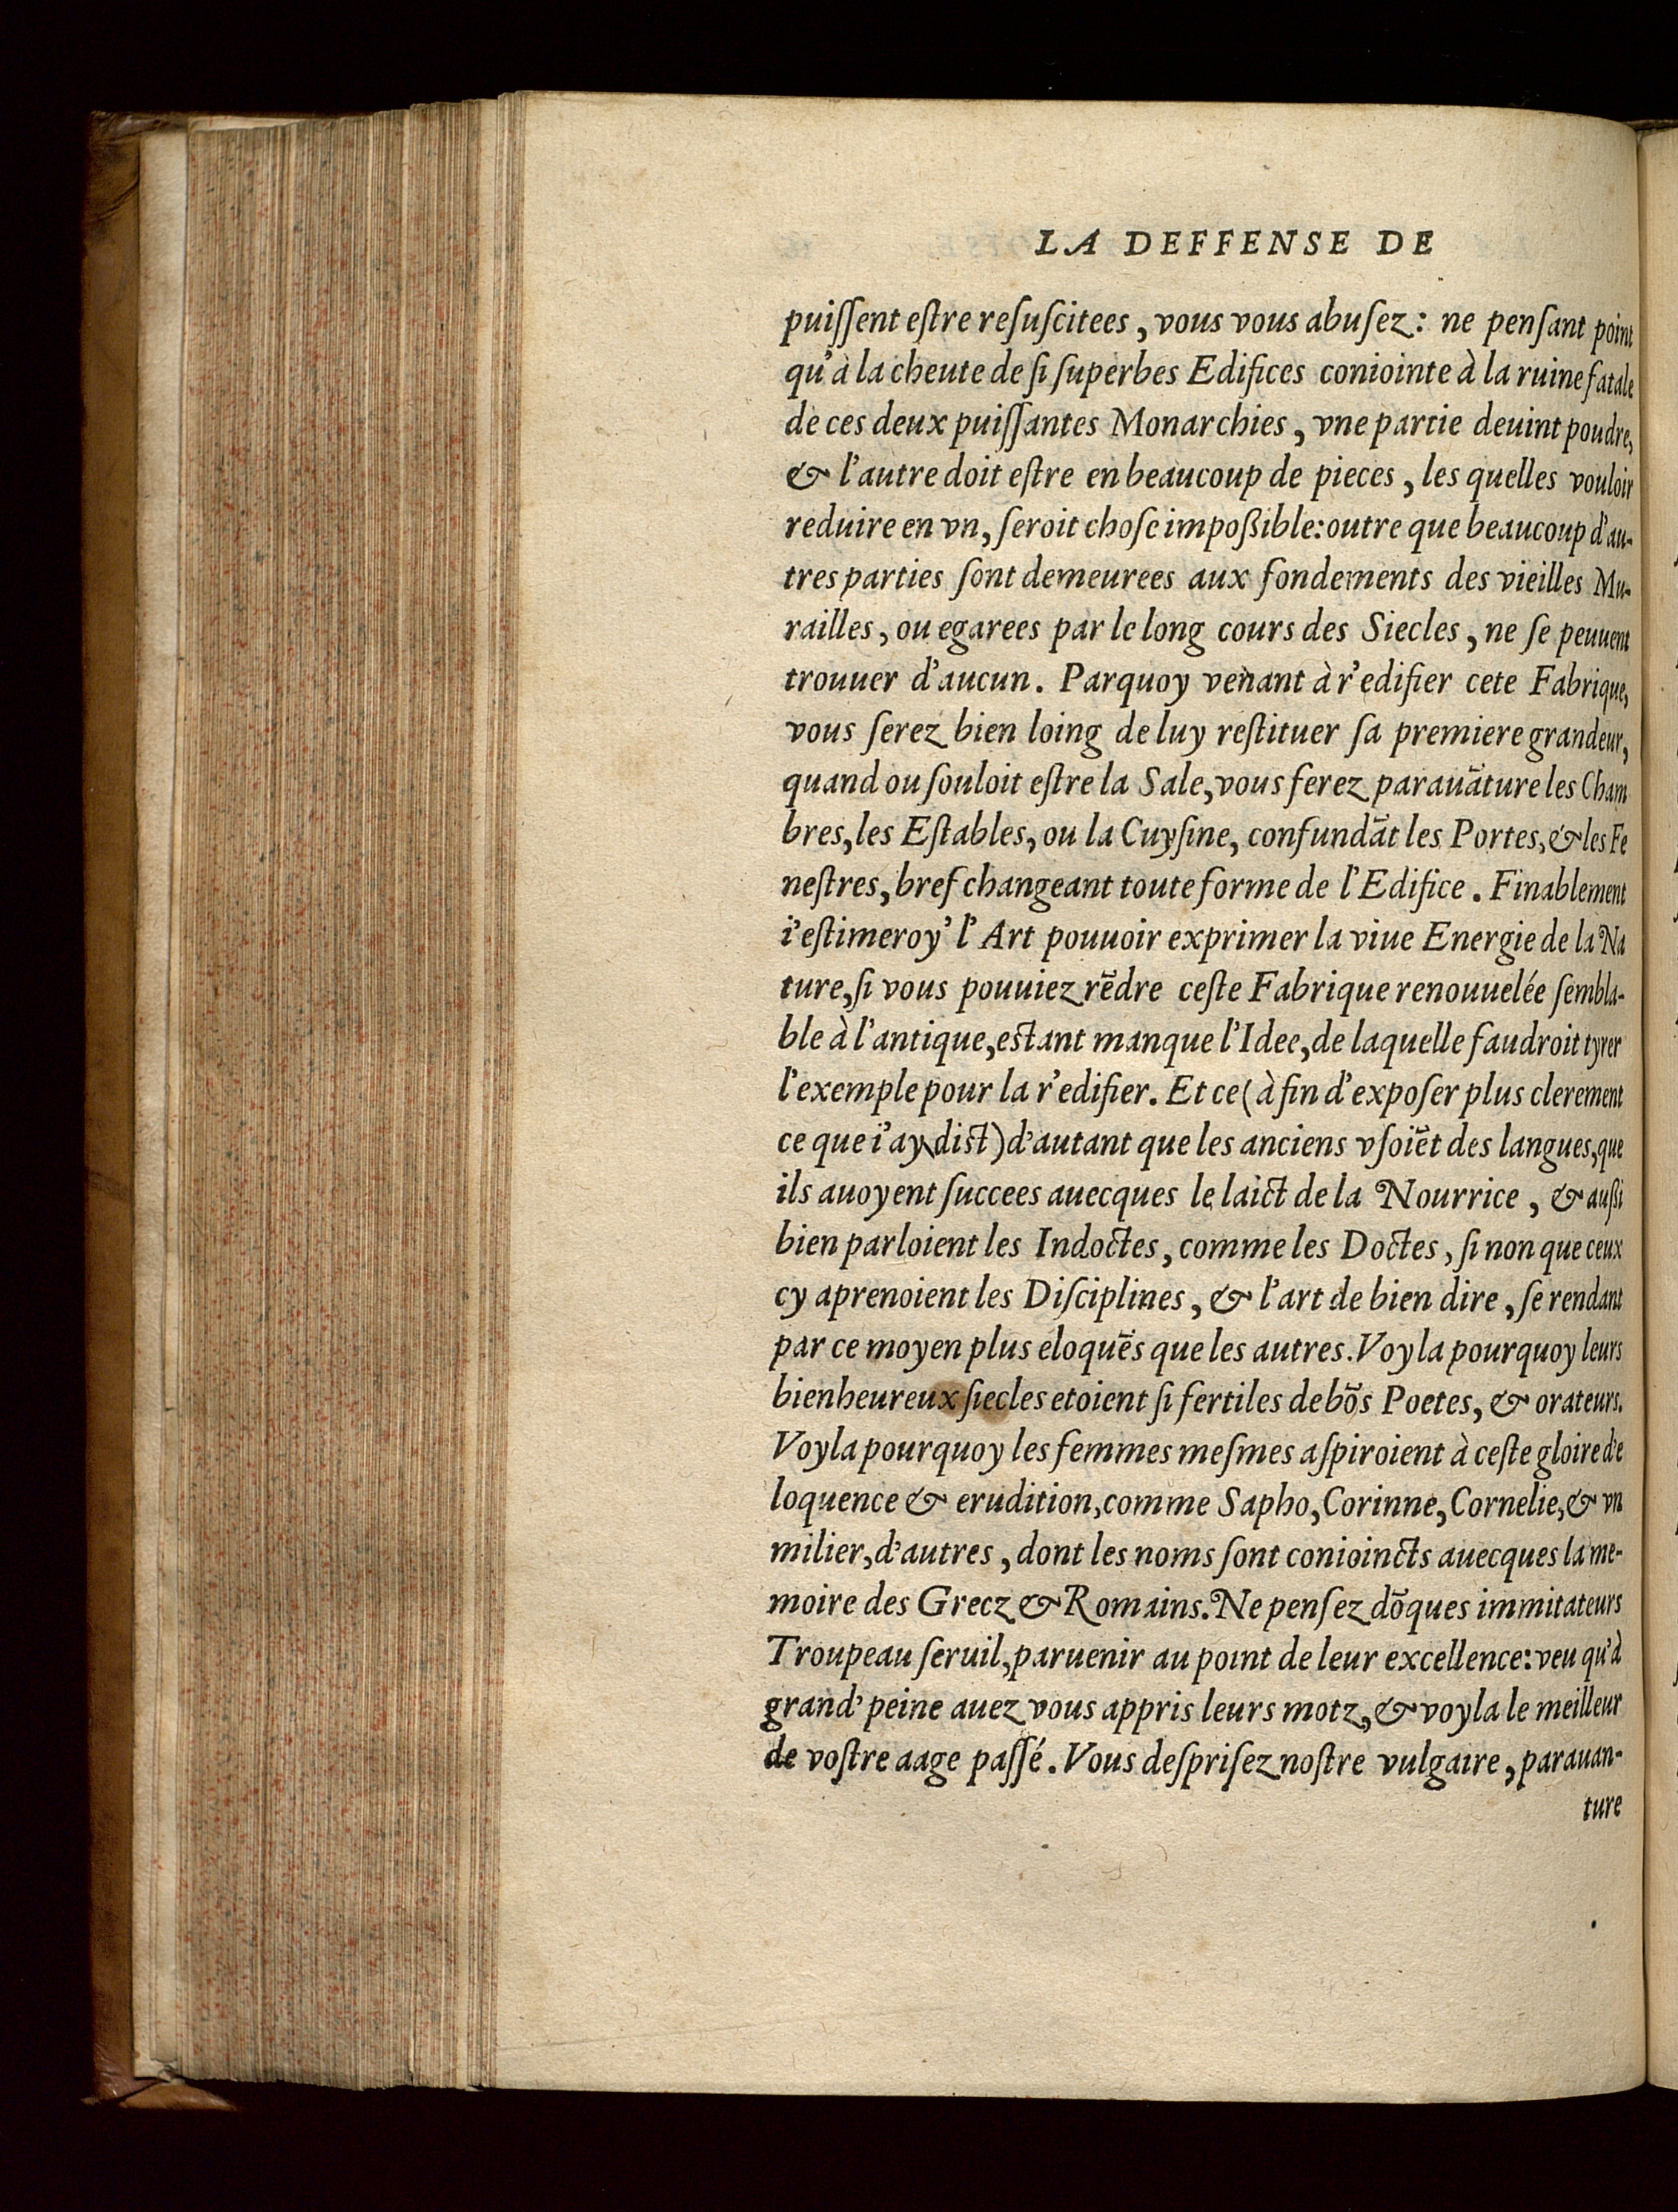 LA DEFFENSE DE
puiſſent eſtre reſuſcitees, vous vous abuſez: ne penſant point
qu'à la cheute de ſi ſuperbes Edifices coniointe à la ruine fatale
de ces deux puiſſantes Monarchies, vne partie deuint poudre,
& l'autre doit eſtre en beaucoup de pieces, les quelles vouloir
reduire en vn, ſeroit choſe impoßible: outre que beaucoup d'au-
tres parties ſont demeurees aux fondements des vieilles Mu-
railles, ou egarees par le long cours des Siecles, ne ſe peuuent
trouuer d'aucun. Parquoy venant à r'edifier cete Fabrique,
vous ſerez bien loing de luy reſtituer ſa premiere grandeur,
quand ou ſouloit eſtre la Sale, vous ferez parauãture les Cham
bres, les Eſtables, ou la Cuyſine, confundãt les Portes, & les Fe
neſtres, bref changeant toute forme de l'Edifice. Finablement
i'eſtimeroy' l'Art pouuoir exprimer la viue Energie de la Na
ture, ſi vous pouuiez rẽdre ceſte Fabrique renouuelée ſembla-
ble à l'antique, estant manque l'Idee, de laquelle faudroit tyrer
l'exemple pour la r'edifier. Et ce (à fin d'expoſer plus clerement
ce que i'ay dict) d'autant que les anciens vſoiẽt des langues, que
ils auoyent ſuccees auecques le laict de la Nourrice, & außi
bien parloient les Indoctes, comme les Doctes, ſi non que ceux
cy aprenoient les Diſciplines, & l'art de bien dire, ſe rendant
par ce moyen plus eloquẽs que les autres. Voyla pourquoy leurs
bienheureux ſiecles etoient ſi fertiles de bõs Poetes, & orateurs.
Voyla pourquoy les femmes meſmes aſpiroient à ceſte gloire d'e
loquence & erudition, comme Sapho, Corinne, Cornelie, & vn
milier, d'autres, dont les noms ſont conioincts auecques la me-
moire des Grecz & Romains. Ne penſez dõques immitateurs
Troupeau ſeruil, paruenir au point de leur excellence: veu qu'à
grand' peine auez vous appris leurs motz, & voyla le meilleur
de voſtre aage paſſé. Vous deſpriſez noſtre vulgaire, parauan-
ture